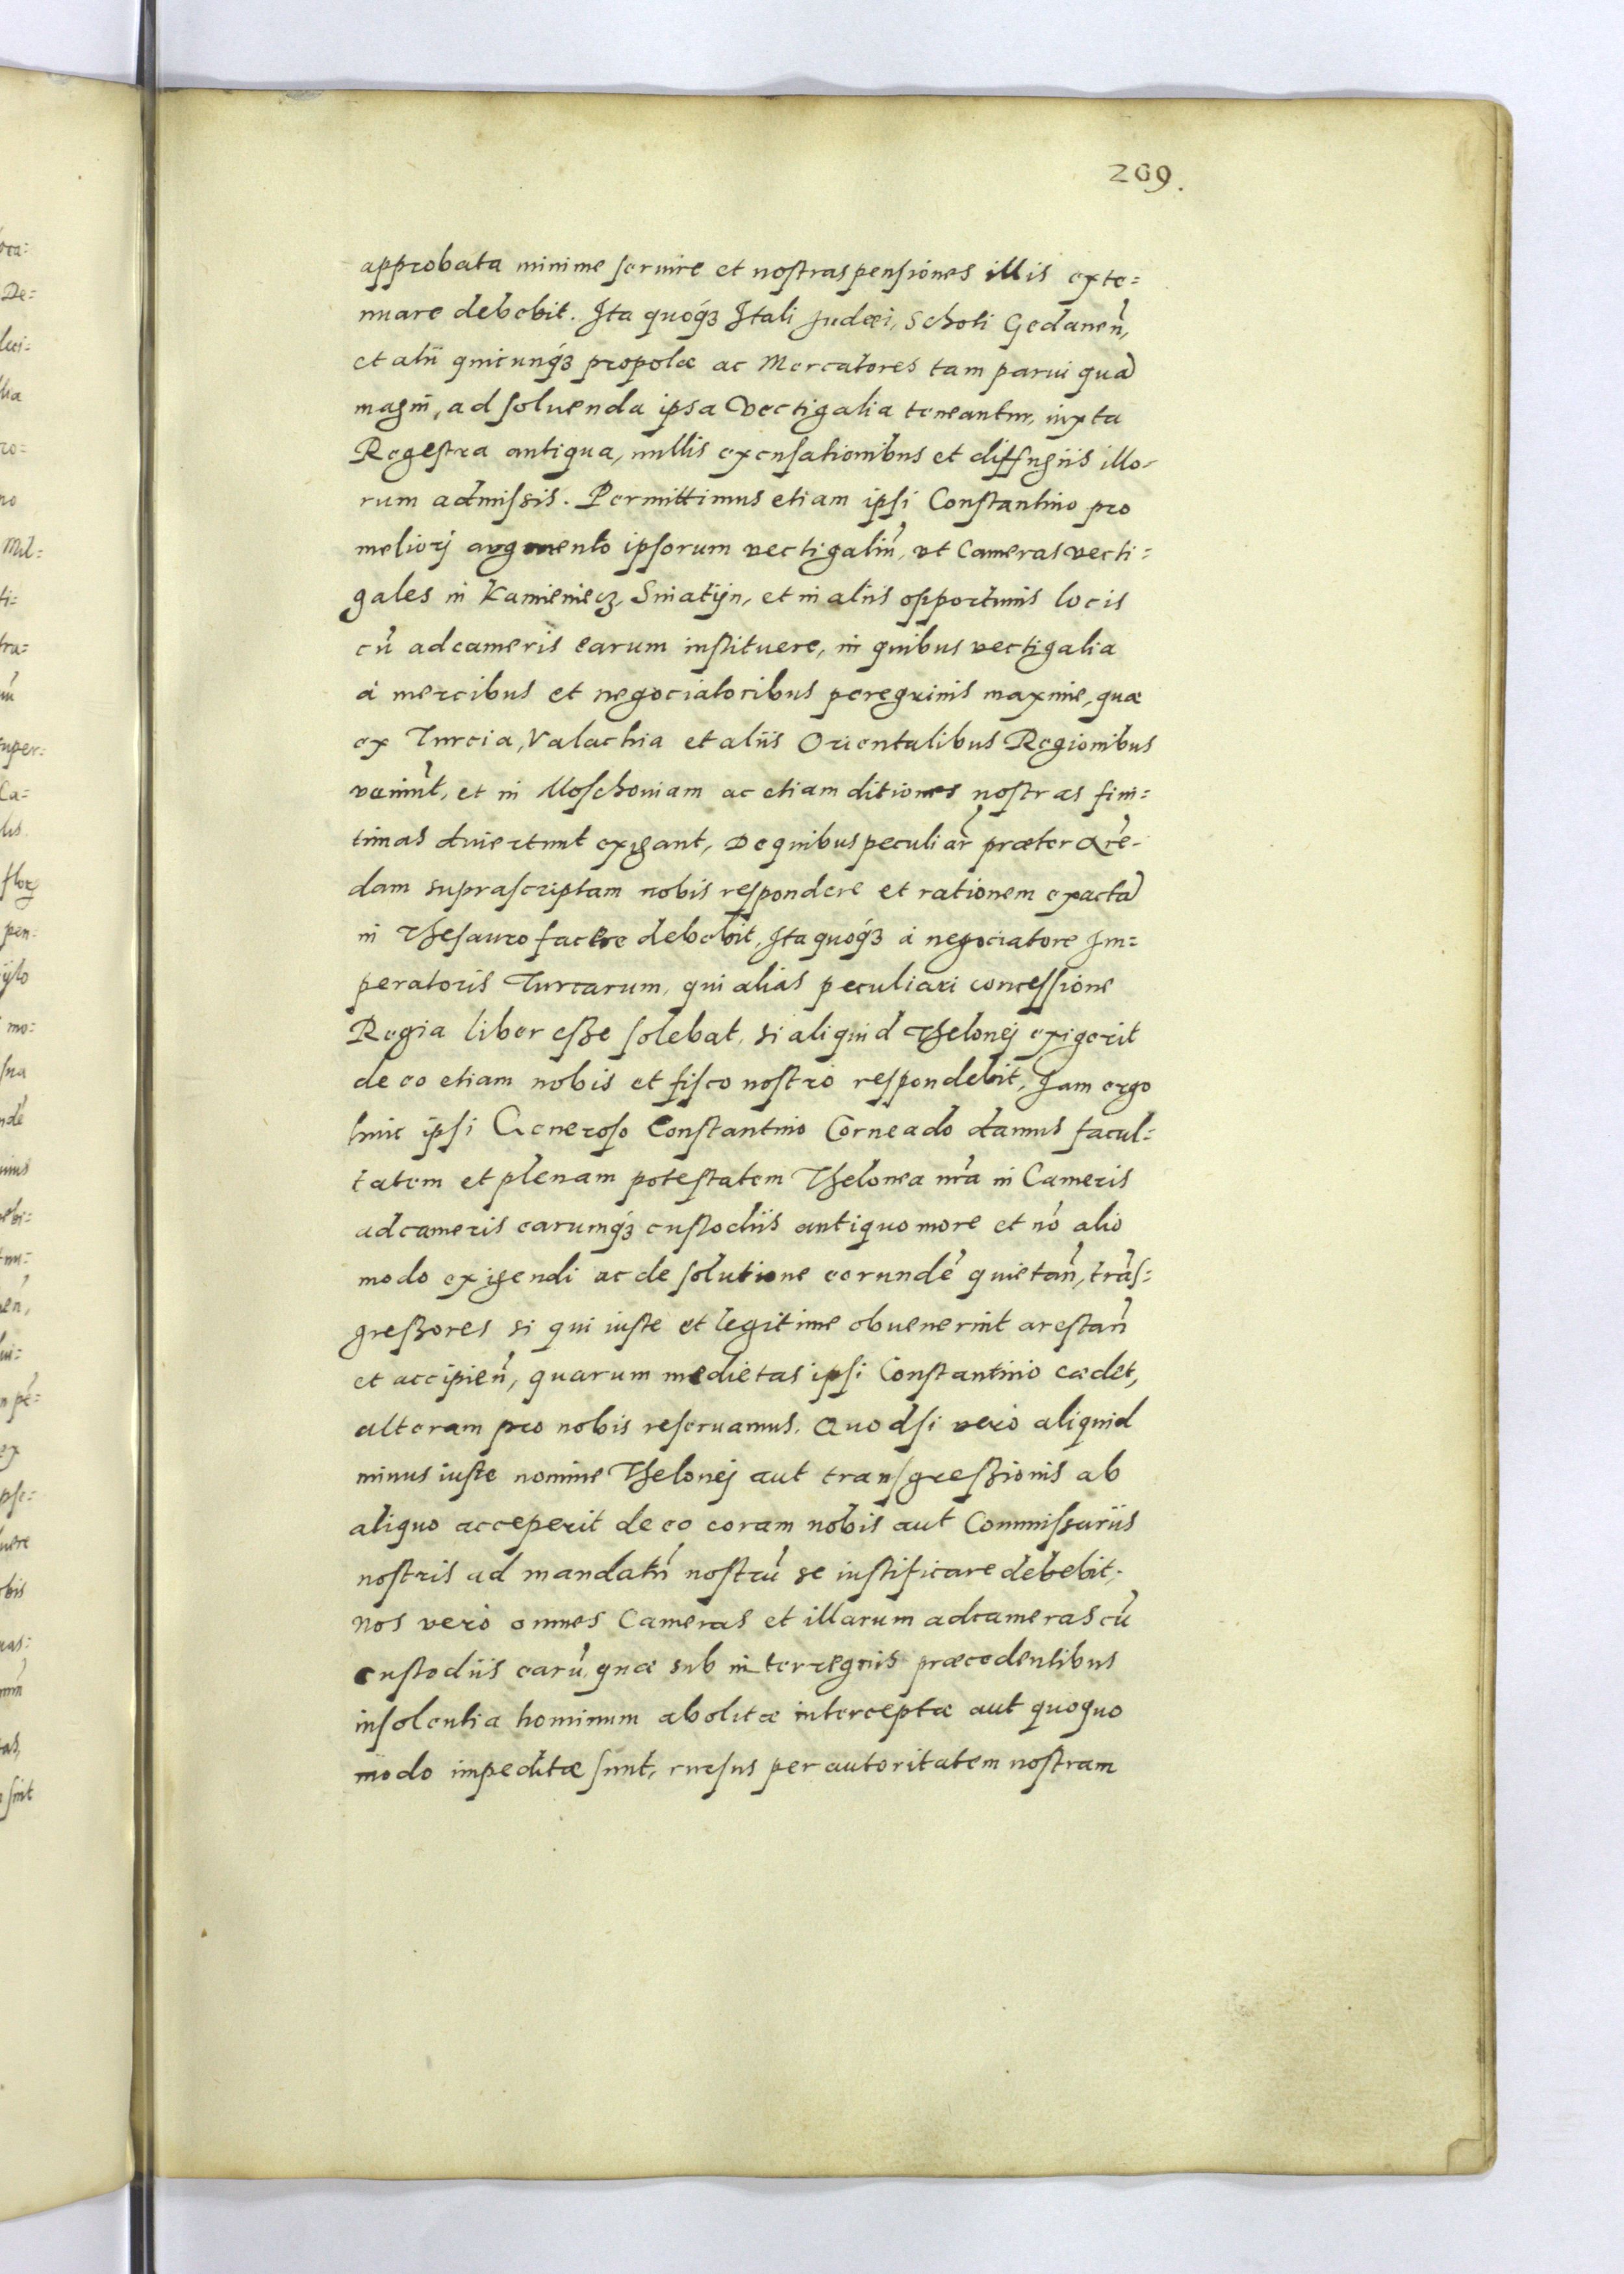 269.
approbata minime seruire et nostras pensiones illis exte=
nuare debebit. Ita quoq́ꝫ Itali Judæi, Schoti Gedaneñ,
et alii quicunq́ꝫ propolæ ac Mercatores tam parui quā
magni, ad soluenda ipsa Vectigalia teneantur, iuxta
Regestra antiqua, nullis excusationibus et diffugiis illo-
rum admissis. Permittimus etiam ipsi Constantino pro
meliorj augmento ipsorum vectigaliū, vt Cameras vecti=
gales in Kamieniecz, Sniatÿn, et in aliis opportunis locis
cū adcameris earum instituere, in quibus vectigalia
à mercibus et negociatoribus peregrinis maxime, quæ
ex Turcia, Valachia et aliis Orientalibus Regionibus
veniūt, et in Moschouiam ac etiam ditiones nostras fini=
timas diuertunt exigant, De quibus peculiar̃ præter arē-
dam suprascriptam nobis respondere et rationem exactā
in Thesauro facere debebit, Ita quoq́ꝫ à negociatore Im=
peratoris Turcarum, qui alias peculiari concessione
Regia liber esse solebat, si aliquid Thelonej exigerit
de eo etiam nobis et fisco nostro respondebit, Jam ergo
huic ipsi Generoso Constantino Corneado damus facul=
tatem et plenam potestatem Thelonea nr̃a in Cameris
adcameris earumq́ꝫ custodiis antiquo more et nō alio
modo exigendi ac de solutione eorundē quietañ, trās=
gressores si qui iuste et legitime obuenerint arestañ
et accipieñ, quarum medietas ipsi Constantino cædet,
alteram pro nobis reseruamus. Quodsi verò aliquid
minus iuste nomine Thelonej aut transgressionis ab
aliquo acceperit de eo coram nobis aut Commissariis
nostris ad mandatū nostrū se iustificare debebit,
Nos verò omnes Cameras et illarum adcameras cū
custodiis earū, quæ sub interregnis præcedentibus
insolentia hominum abolitæ interceptæ aut quoquo
modo impeditæ sunt, rursus per autoritatem nostram